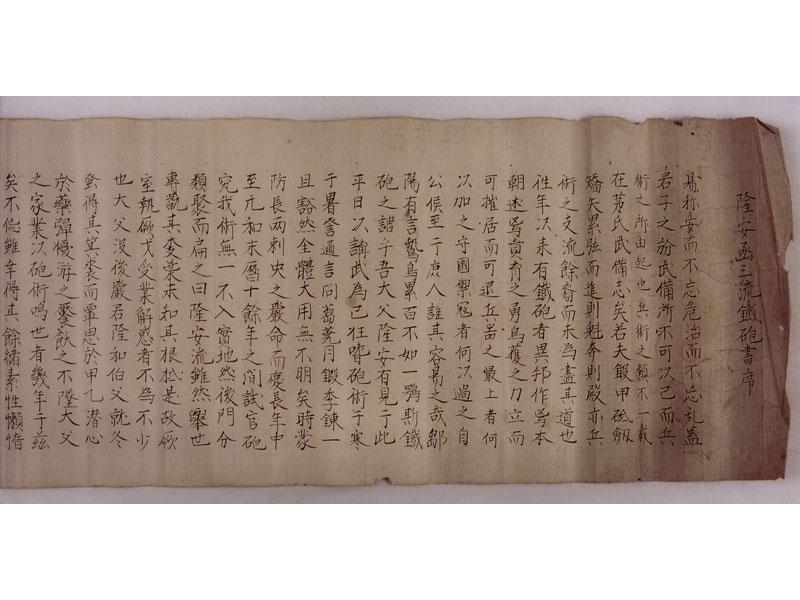 隆安函三流鐵砲書序
易称安而不忘危治而不忘乱蓋
君子之於武備所不可以已而兵
術之所由起也兵術之類不一載
在茅氏武備志矣若夫鍛甲砥劔
矯矢累弦而進則魁奔則殿亦兵
術之支流餘裔而未為盡其道也
往年以来有鐵砲者異邦作為本
朝述焉賁育之勇烏獲之力立而
可摧居而可退兵器之最上者何
以加之守國禦冦者何以過之自
公侯至于庶人誰其容易之哉鄒
陽有言鷙鳥累百不如一鶚斯鐵
砲之謂乎吾大父隆安有見于此
平日以講武為己任嗜砲術于寒
于暑詧邇言問蒭蕘月鍛季錬一
且豁然全體大用無不明矣時蒙
防長兩刺史之嚴命而寔長年中
至元和末曆十餘年之間試官砲
究我術無一不入實地然後門分
類聚而扁之曰隆安流雖然舉世
專翫其委葉未知其根柢是故敲
室執鞭弋受業解惑者不為不少
也大父没後嚴君隆和伯父就冬
蚤得其箕裘而覃思於甲乙潜心
於藥彈慢游之饗飲之不墜大父
之家業以砲術鳴世者幾年于茲
矣不佞雖幸得其餘緒素性懶惰